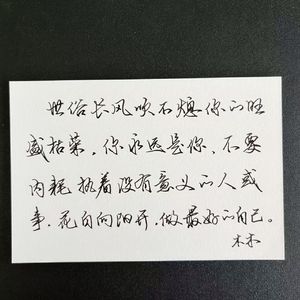 世俗长风吹不熄你的旺
盛枯荣，你永远是你，不要
内耗执着没有意义的人或
事，花自向阳开，做最好的自己。
木木